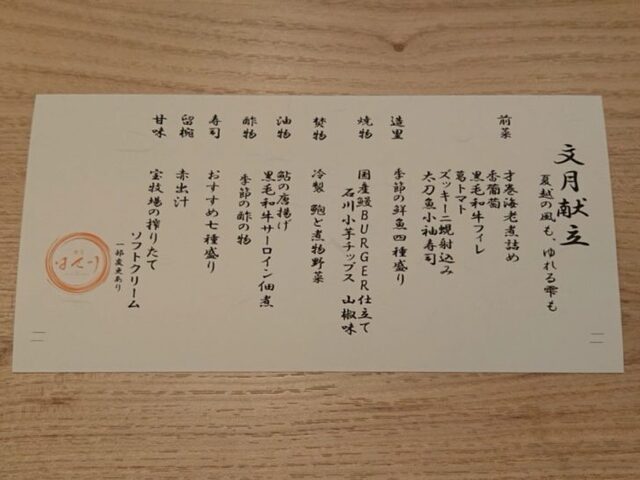 文月献立
夏越の風も、ゆれる雫も
前菜
才巻海老煮詰め
香葡萄
黒毛和牛フィレ
葛トマト
ズッキーニ蜆射込み
太刀魚小袖寿司
造里
季節の鮮魚四種盛り
焼物
国産鰻BURGER仕立て
石川小芋チップス 山椒味
焚物
冷製 鮑と煮物野菜
油物
鮎の唐揚げ
黒毛和牛サーロイン佃煮
酢物
季節の酢の物
寿司
おすすめ七種盛り
留椀
赤出汁
甘味
宝牧場の搾りたて
ソフトクリーム
一部変更あり